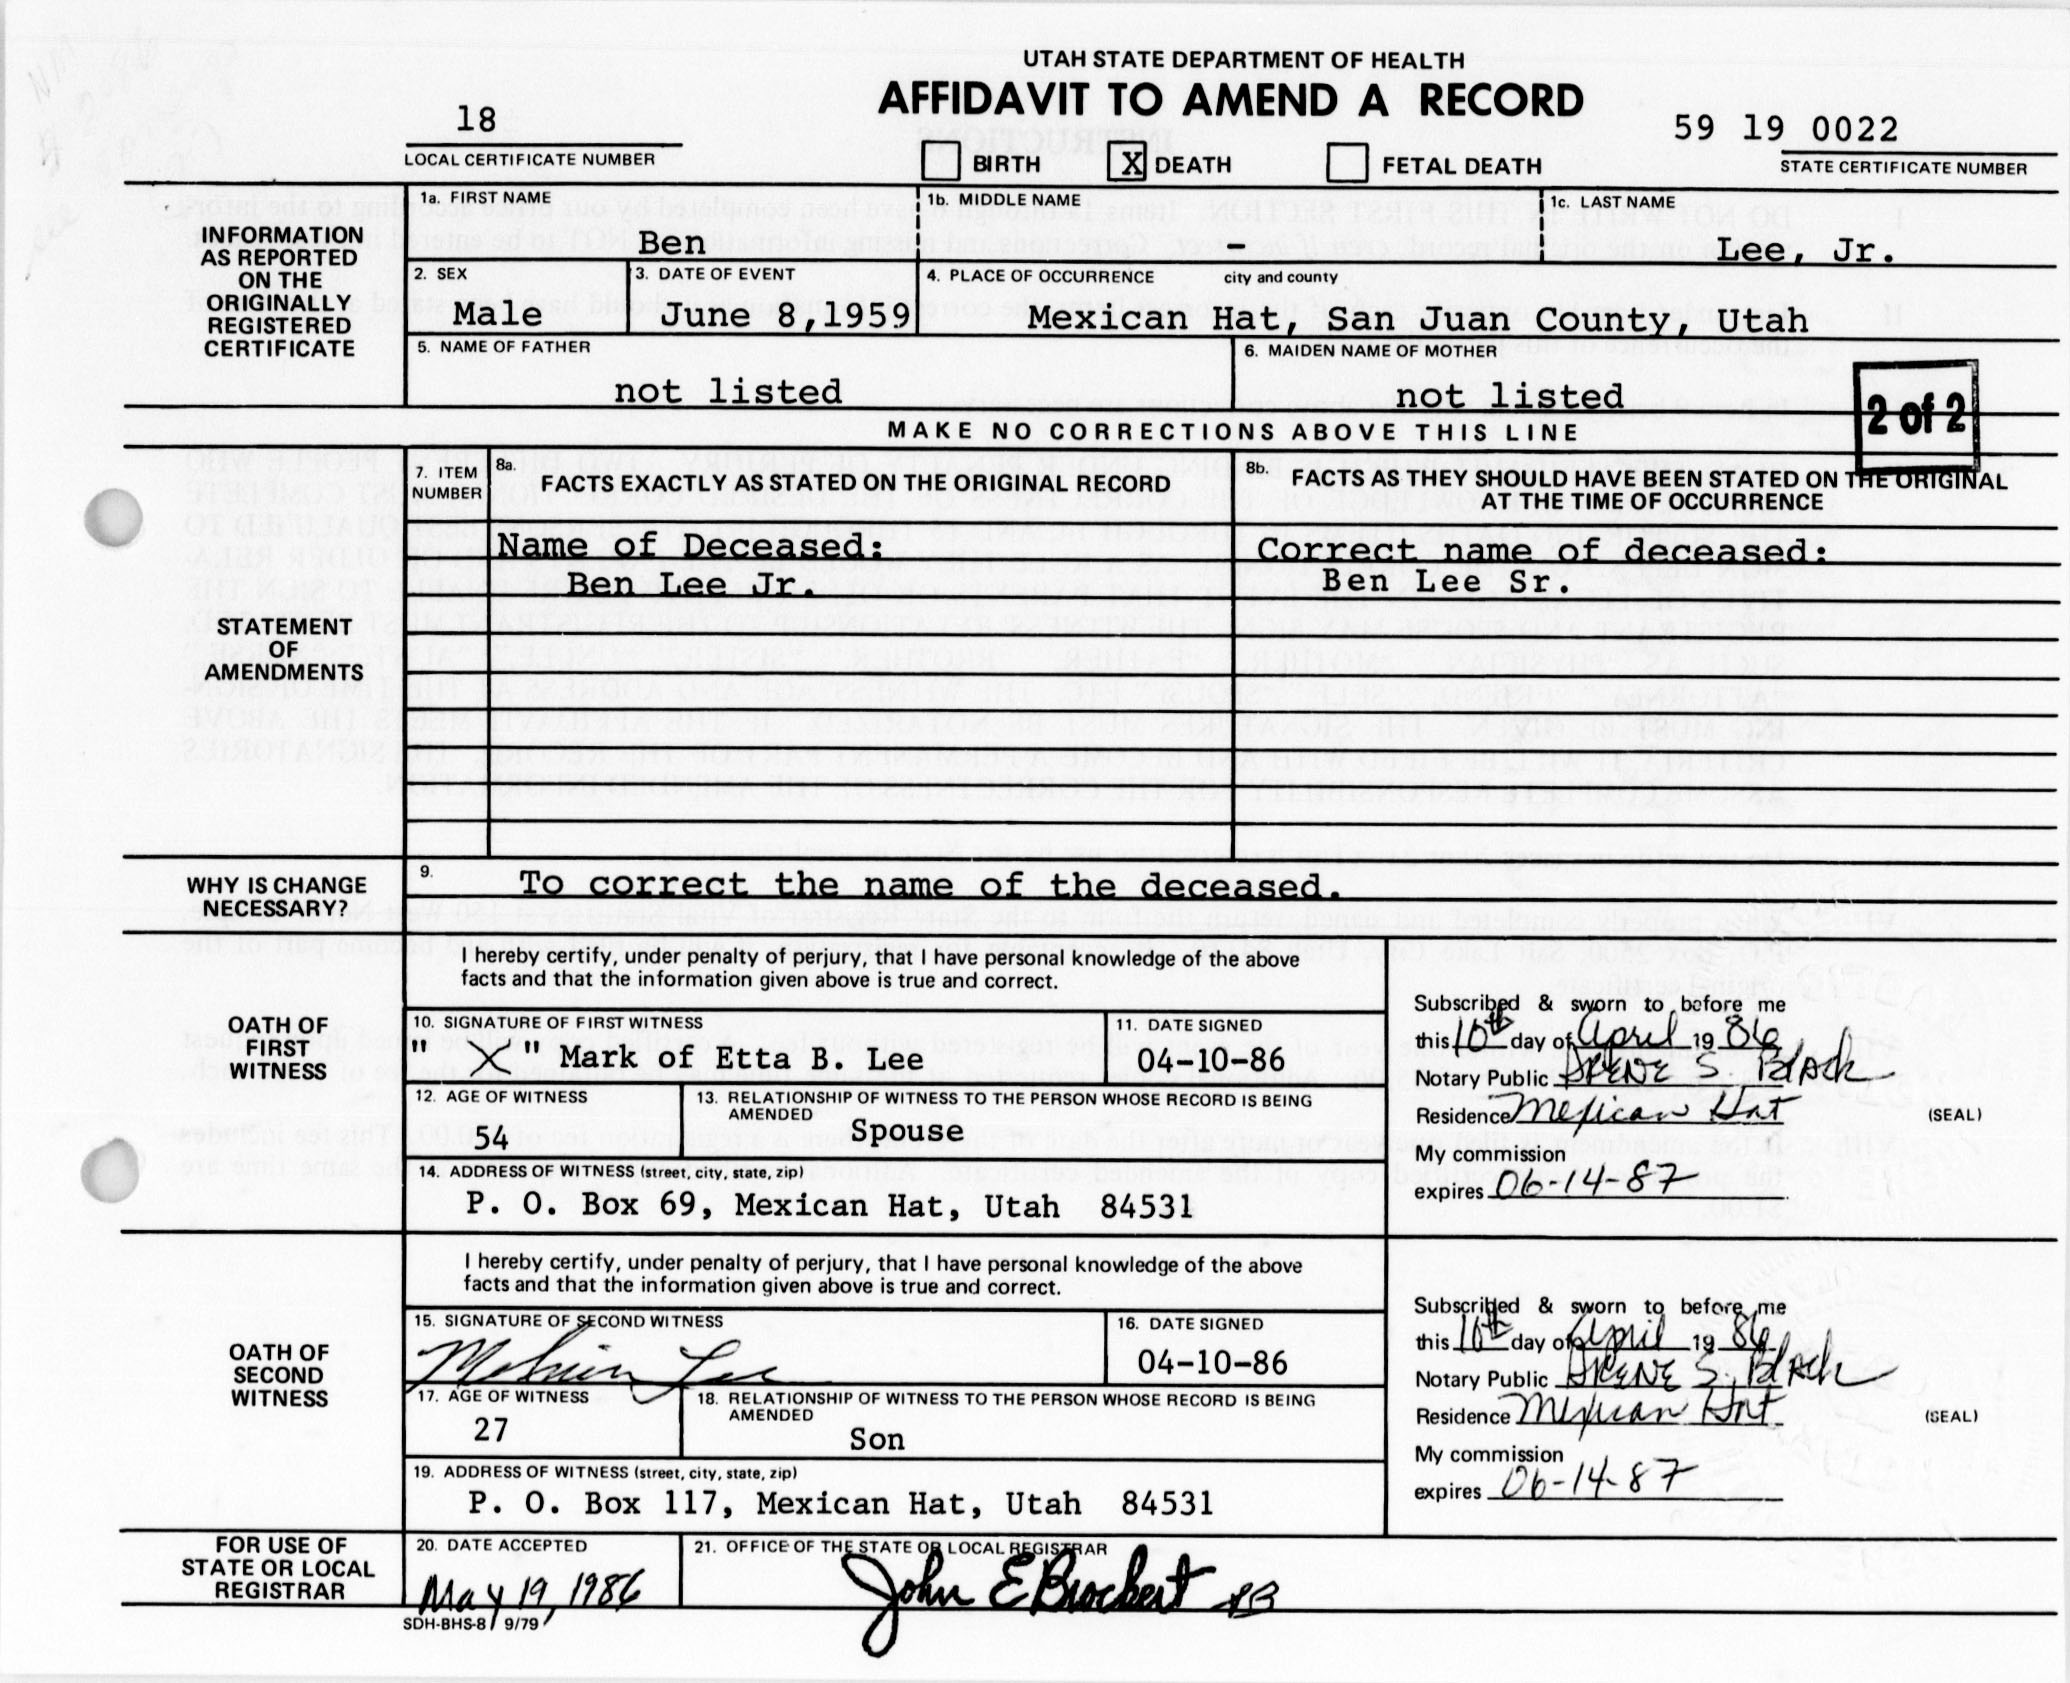 UTAH STATE DEPARTMENT OF HEALTH
AFFIDAVIT TO AMEND A RECORD
18
LOCAL CERTIFICATE NUMBER
BIRTH X DEATH FETAL DEATH
59 19 0022
STATE CERTIFICATE NUMBER
INFORMATION
AS REPORTED
ON THE
ORIGINALLY
REGISTERED
CERTIFICATE
1a. FIRST NAME
Ben
1b. MIDDLE NAME
-
1c. LAST NAME
Lee, Jr.
2. SEX
Male
3. DATE OF EVENT
June 8,1959
4. PLACE OF OCCURRENCE city and county
Mexican Hat, San Juan County, Utah
5. NAME OF FATHER
not listed
6. MAIDEN NAME OF MOTHER
not listed
2 of 2
MAKE NO CORRECTIONS ABOVE THIS LINE
STATEMENT
OF
AMENDMENTS
7. ITEM
NUMBER
8a.
FACTS EXACTLY AS STATED ON THE ORIGINAL RECORD
8b.
FACTS AS THEY SHOULD HAVE BEEN STATED ON THE ORIGINAL
AT THE TIME OF OCCURRENCE
Name of Deceased:
Ben Lee Jr.
Correct name of deceased:
Ben Lee Sr.
WHY IS CHANGE
NECESSARY?
9.
To correct the name of the deceased.
OATH OF
FIRST
WITNESS
I hereby certify, under penalty of perjury, that I have personal knowledge of the above
facts and that the information given above is true and correct.
10. SIGNATURE OF FIRST WITNESS
" X " Mark of Etta B. Lee
11. DATE SIGNED
04-10-86
12. AGE OF WITNESS
54
13. RELATIONSHIP OF WITNESS TO THE PERSON WHOSE RECORD IS BEING
AMENDED
Spouse
14. ADDRESS OF WITNESS (street, city, state, zip)
P. O. Box 69, Mexican Hat, Utah 84531
Subscribed & sworn to before me
this 10th day of April 19 86
Notary Public S. Black
Residence Mexican Hat
(SEAL)
My commission
expires 06-14-87
OATH OF
SECOND
WITNESS
I hereby certify, under penalty of perjury, that I have personal knowledge of the above
facts and that the information given above is true and correct.
15. SIGNATURE OF SECOND WITNESS
Lee
16. DATE SIGNED
04-10-86
17. AGE OF WITNESS
27
18. RELATIONSHIP OF WITNESS TO THE PERSON WHOSE RECORD IS BEING
AMENDED
Son
19. ADDRESS OF WITNESS (street, city, state, zip)
P. O. Box 117, Mexican Hat, Utah 84531
Subscribed & sworn to before me
this 10th day of April 19 86
Notary Public S. Black
Residence Mexican Hat
(SEAL)
My commission
expires 06-14-87
FOR USE OF
STATE OR LOCAL
REGISTRAR
20. DATE ACCEPTED
May 19, 1986
21. OFFICE OF THE STATE OR LOCAL REGISTRAR
John E Brockert
SDH-BHS-8 9/79